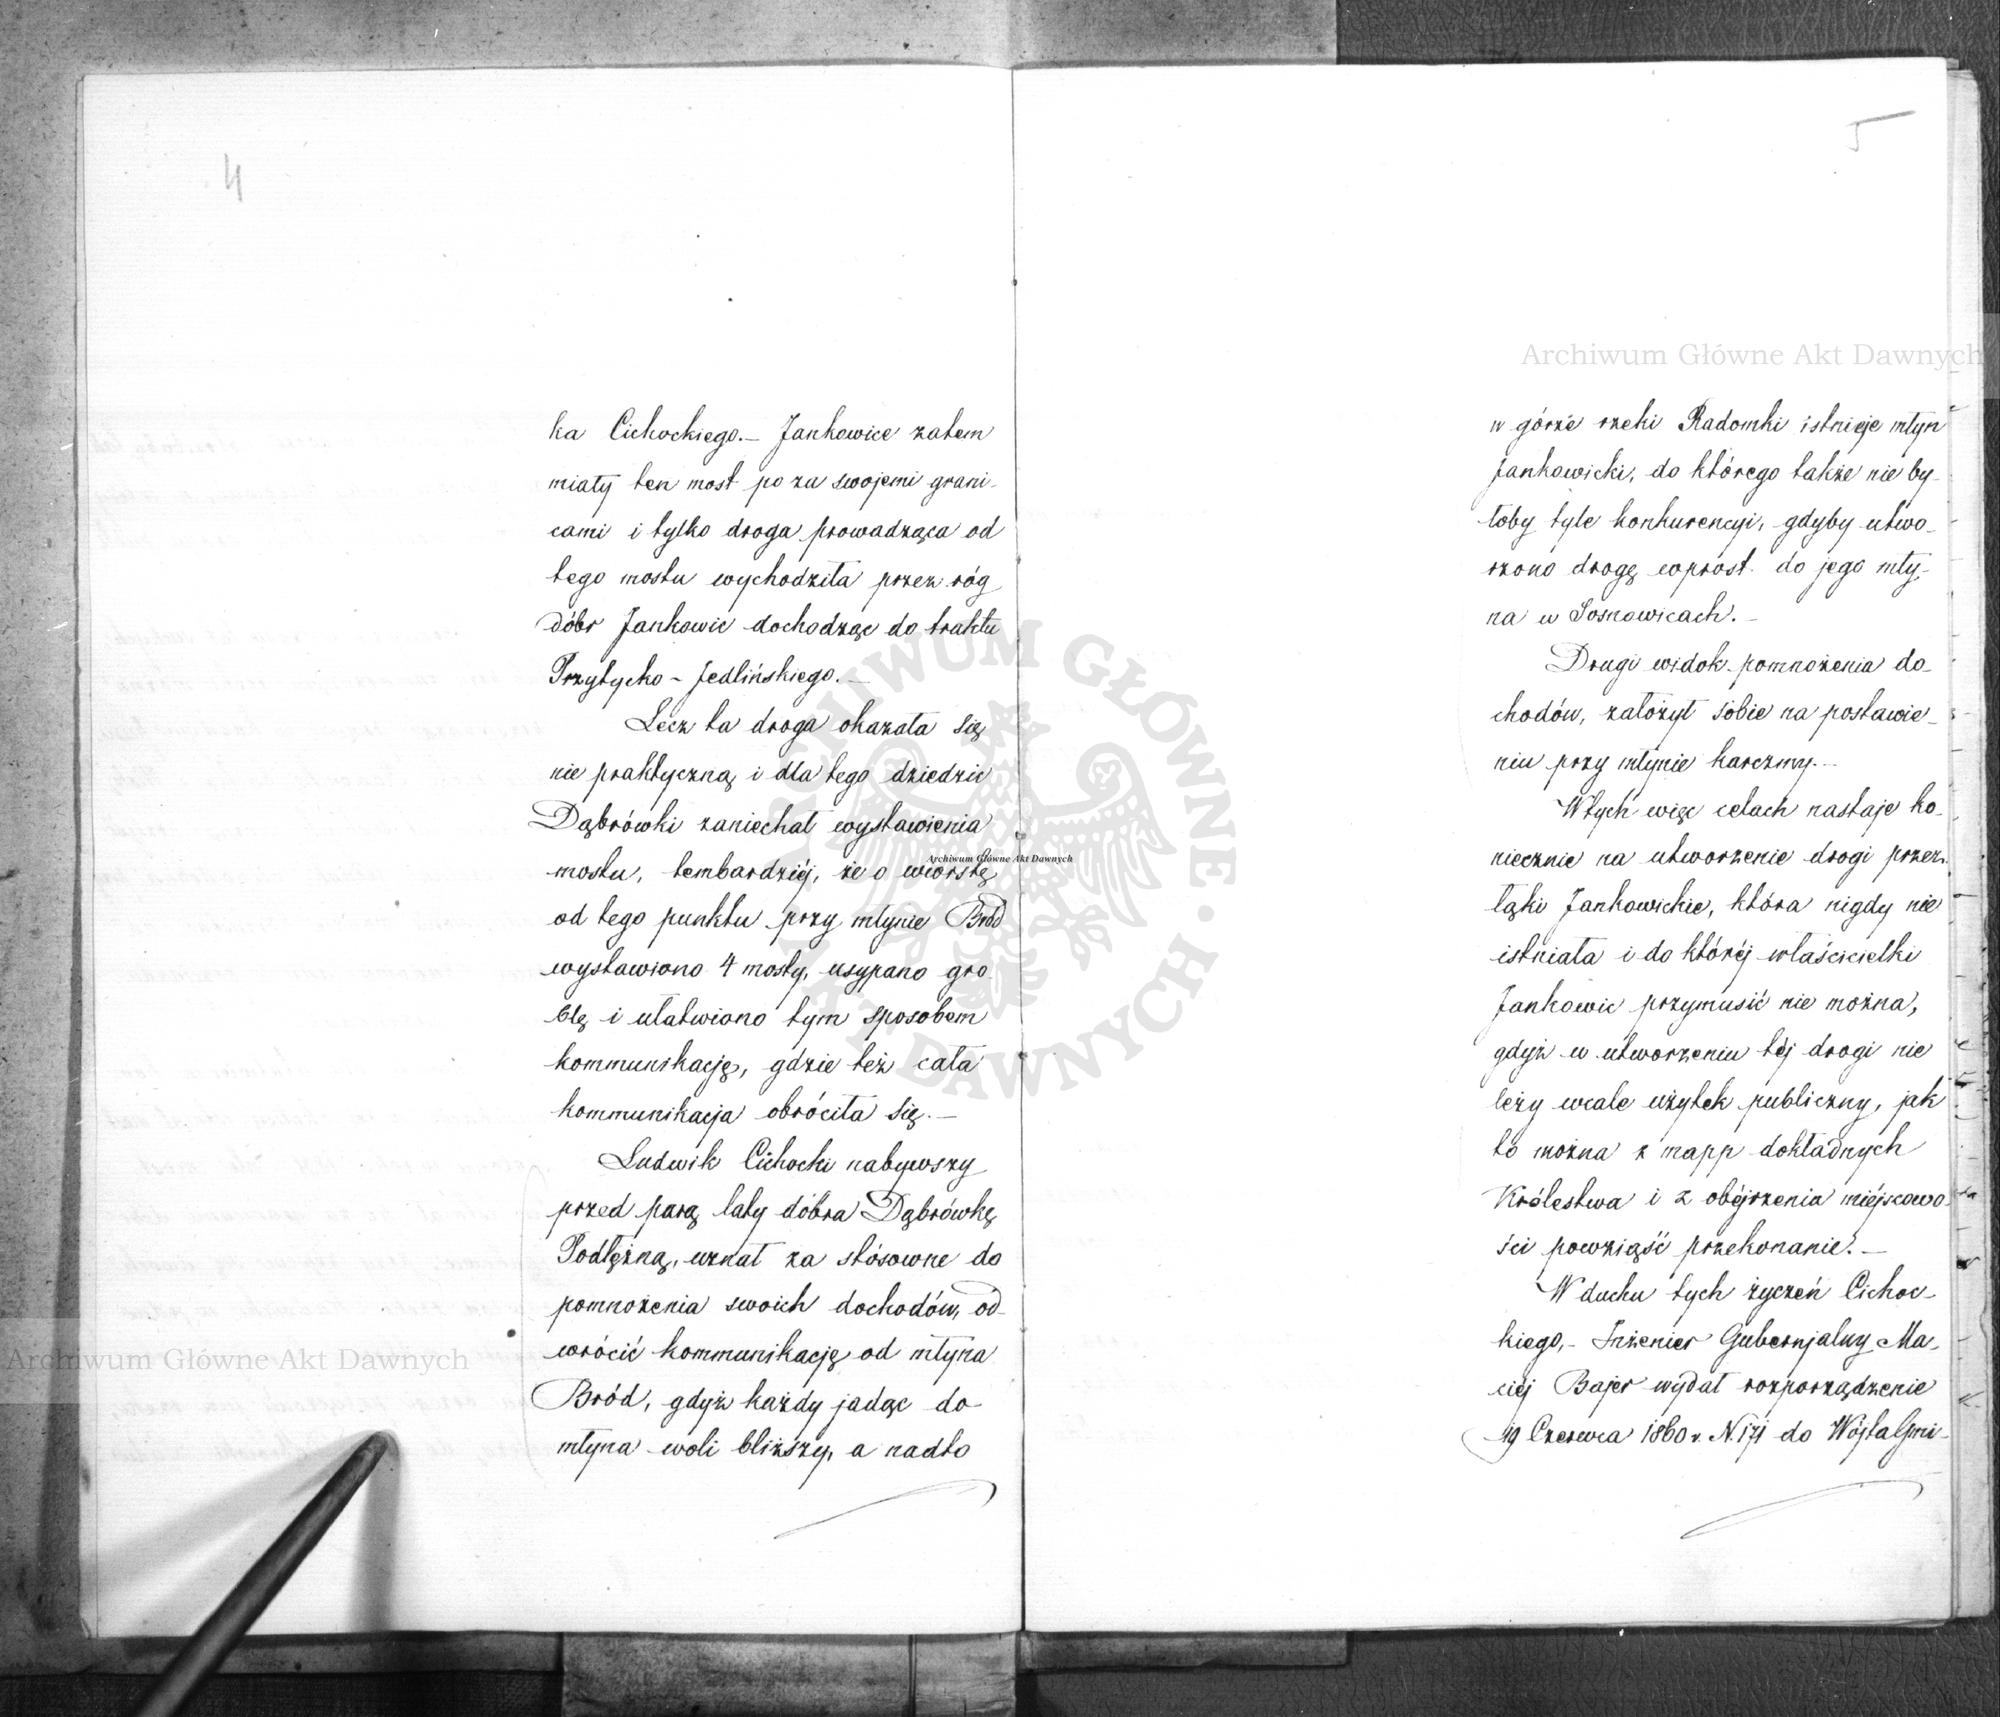 4
ka Cichockiego.– Jankowice zatem
miały ten most po za swojemi grani-
cami i tylko droga prowadząca od
tego mostu wychodziła przez róg
dóbr Jankowic dochodząc do traktu
Przytycko-Jedlińskiego.–
Lecz ta droga okazała się
nie praktyczną i dla tego dziedzic
Dąbrówki zaniechał wystawienia
mostu, tembardziéj, że o wiorstę
od tego punktu przy młynie Bród
wystawiono 4 mosty, usypano gro-
blę i ułatwiono tym sposobem
kommunikację, gdzie też cała
kommunikacja obróciła się.–
Ludwik Cichocki nabywszy
przed parą laty dobra Dąbrówkę
Podłężną, uznał za stósowne do
pomnożenia swoich dochodów, od-
wrócić kommunikację od młyna
Bród, gdyż każdy jadąc do
młyna woli bliższy, a nadto
5
w górze rzeki Radomki istnieje młyn
Jankowicki, do którego także nie by-
łoby tyle konkurencyi, gdyby utwo-
rzono drogę wprost do jego mły-
na w Sosnowicach.–
Drugi widok pomnożenia do-
chodów, założył sobie na postawie-
niu przy młynie karczmy.–
W tych więc celach nastaje ko-
niecznie na utworzenie drogi przez
łąki Jankowickie, która nigdy nie
istniała i do któréj właścicielki
Jankowic przymusić nie można,
gdyż w utworzeniu téj drogi nie
leży wcale użytek publiczny, jak
to można z mapp dokładnych
Królestwa i z obéjrzenia miéjscowo-
ści powziąść przekonanie.–
W duchu tych życzeń Cichoc-
kiego,– Inżenier Gubernjalny Ma-
ciéj Bajer wydał rozporządzenie
19 Czerwca 1860 r. N. 171 do Wójta Gmi-
Archiwum Główne Akt Dawnych
Archiwum Główne Akt Dawnych
Archiwum Główne Akt Dawnych
ARCHIWUM GŁÓWNE AKT DAWNYCH